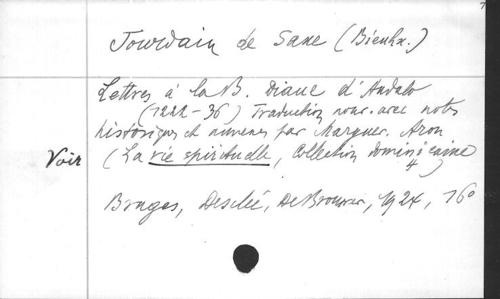 Jourdain de Saxe (Bienhx.)
Lettres à la B. Diane d'Andalo
(1222-36) Traduction nouv. avec notes
historiques et annexes par Marguer. Aron
Voir (La vie spirituelle, Collection dominicaine
4)
Bruges, Desclée, De Brouwer, 1924, 16°